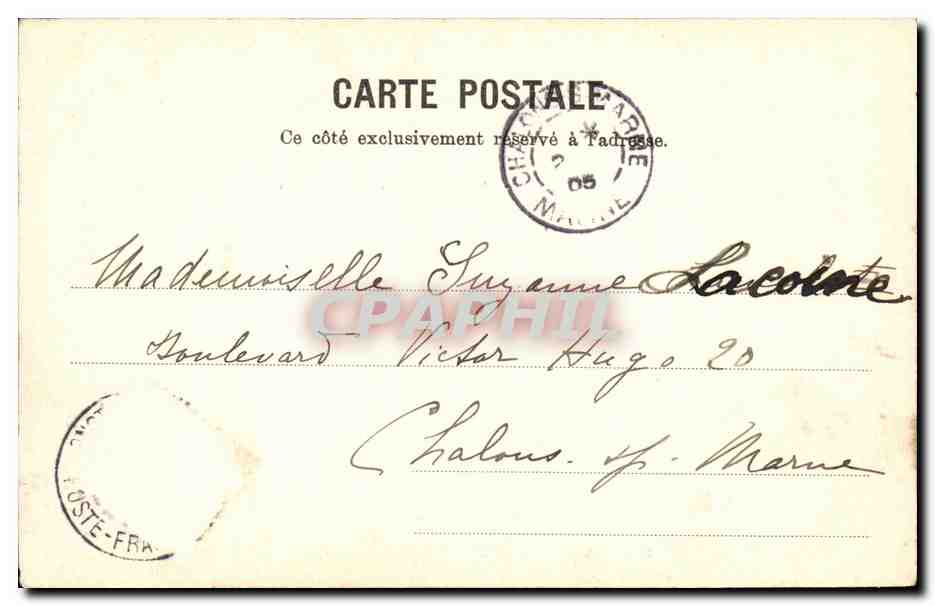 CARTE POSTALE
Ce côté exclusivement réservé à l'adresse.
CHALONS S MARNE
05
MARNE
Mademoiselle Suzanne Lacoine
CPAPHIL
Boulevard Victor Hugo 20
Chalons s/ Marne
POSTE-FRA